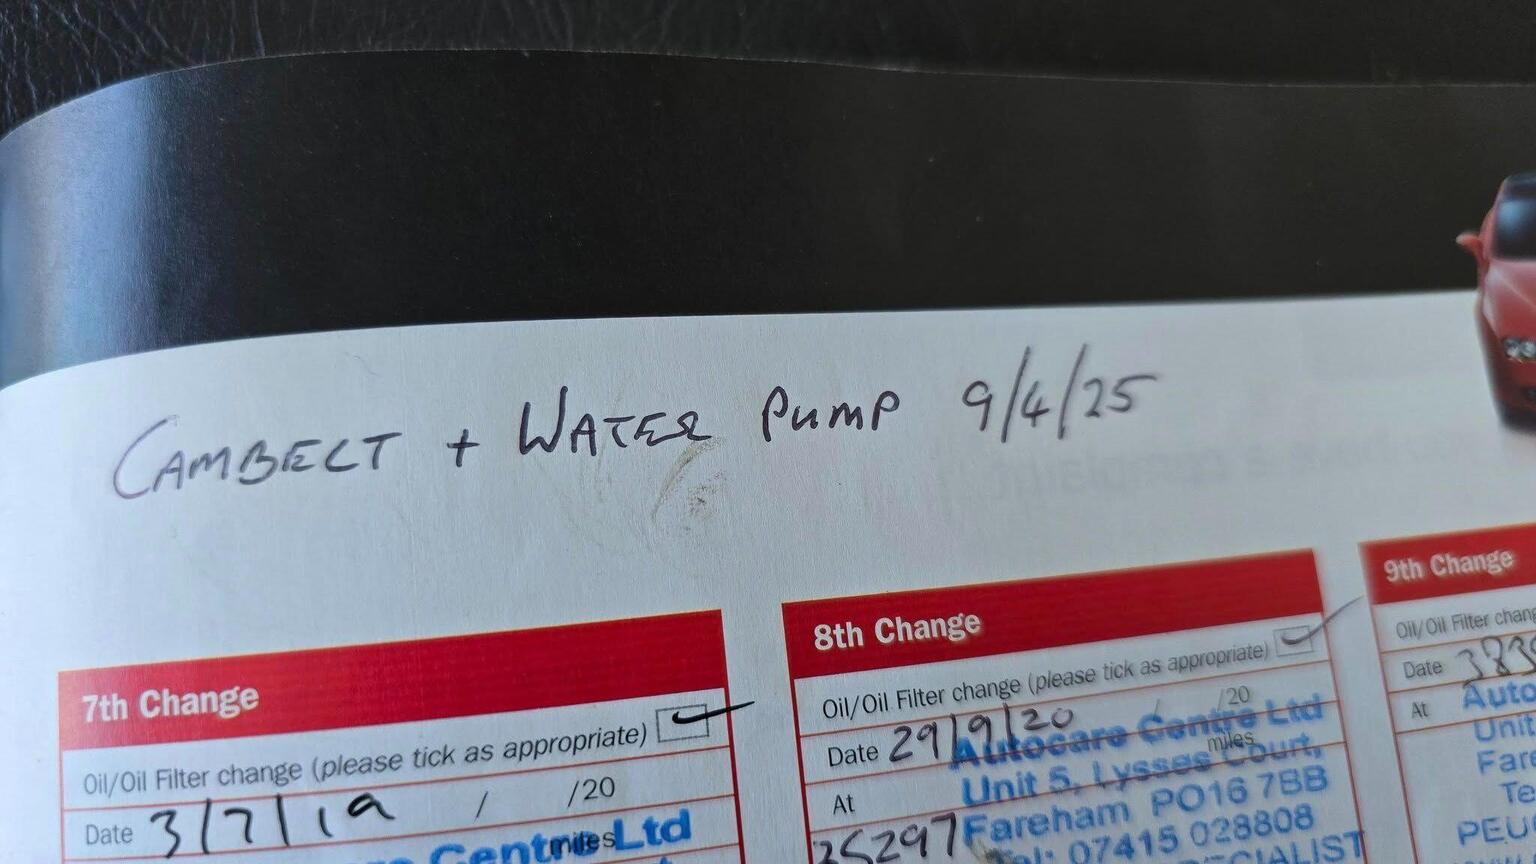 CAMBELT + WATER PUMP 9/4/25
7th Change
Oil/Oil Filter change (please tick as appropriate)
Date 3/7/19 / /20
miles
Centre Ltd
8th Change
Oil/Oil Filter change (please tick as appropriate)
Date 29/9/20 / /20
Autocare Centre Ltd
miles
At
Unit 5, Lysses Court,
25297
Fareham PO16 7BB
Tel: 07415 028808
9th Change
Oil/Oil Filter
Date
At
Unit